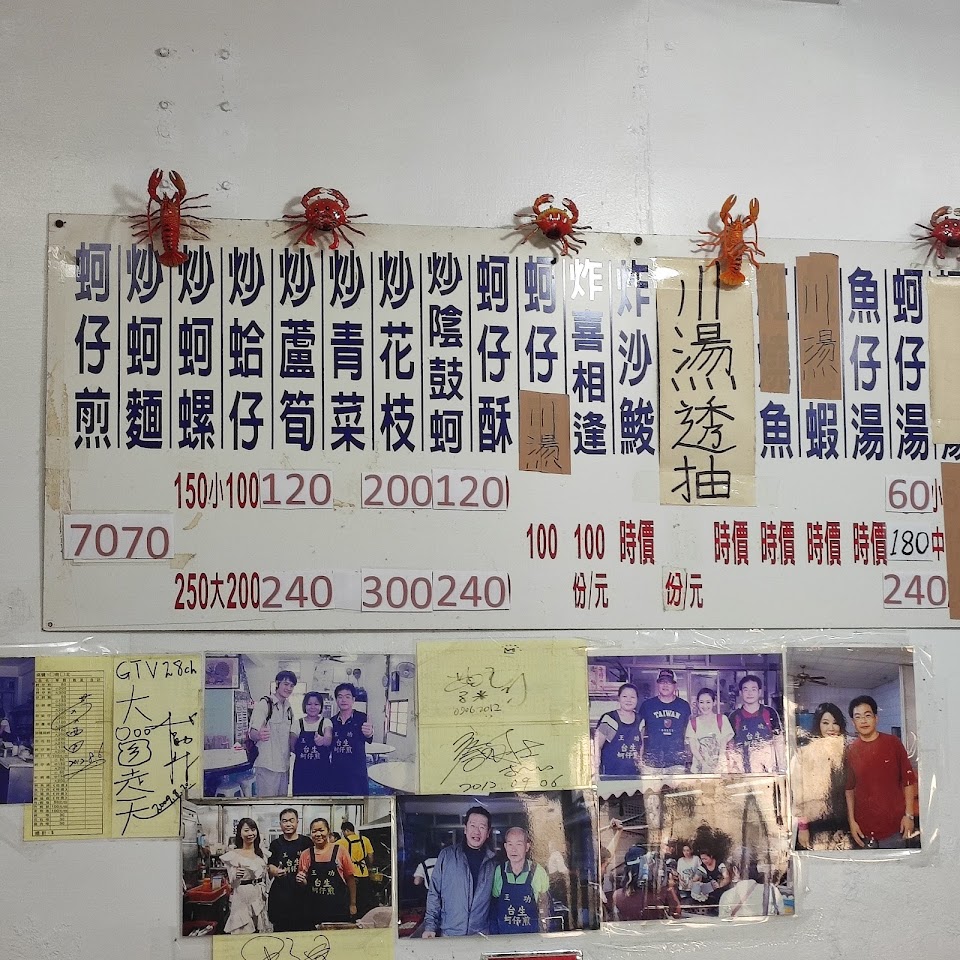 蚵仔煎
炒蚵麵
炒蚵螺
炒蛤仔
炒蘆筍
炒青菜
炒花枝
炒陰鼓蚵
蚵仔酥
蚵仔
川湯
炸喜相逢
炸沙鮻
川湯透抽
魚
川湯
蝦
魚仔湯
蚵仔湯
湯
150小100 120 200 120 60小
7070 100 100 時價 時價 時價 時價 時價 180中
250大200 240 300 240 份/元 份/元 240
GTV28ch
大圓走天
2012.09.06
TAIWAN
王功
台生
蚵仔煎
王功
台生
蚵仔煎
王功
台生
蚵仔煎